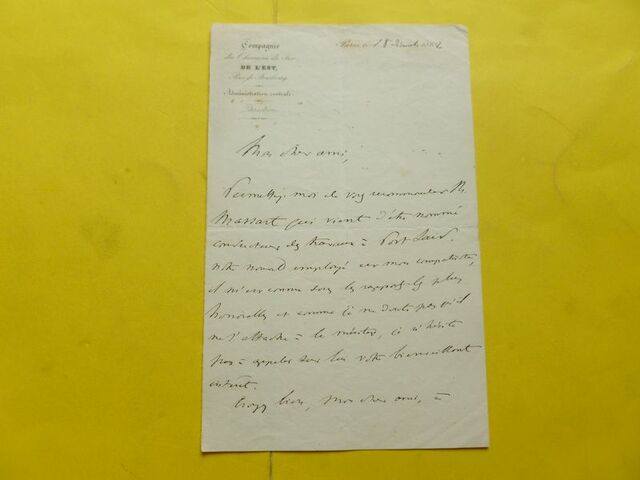 Compagnie
des Chemins de Fer
DE L'EST,
Rue de Strasbourg
Administration centrale
Direction
Paris, le 18
Mon cher ami,
Permettez moi de vous recommander M.
Massart qui vient d'être nommé
conducteur des travaux à Port Said.
Votre nouvel employé est mon compatriote,
il m'est connu sous les rapports les plus
honorables et comme je ne doute pas qu'il
ne s'attache à le mériter, je n'hésite
pas à appeler sur lui votre bienveillant
intérêt.
Croyez bien, mon cher ami, à